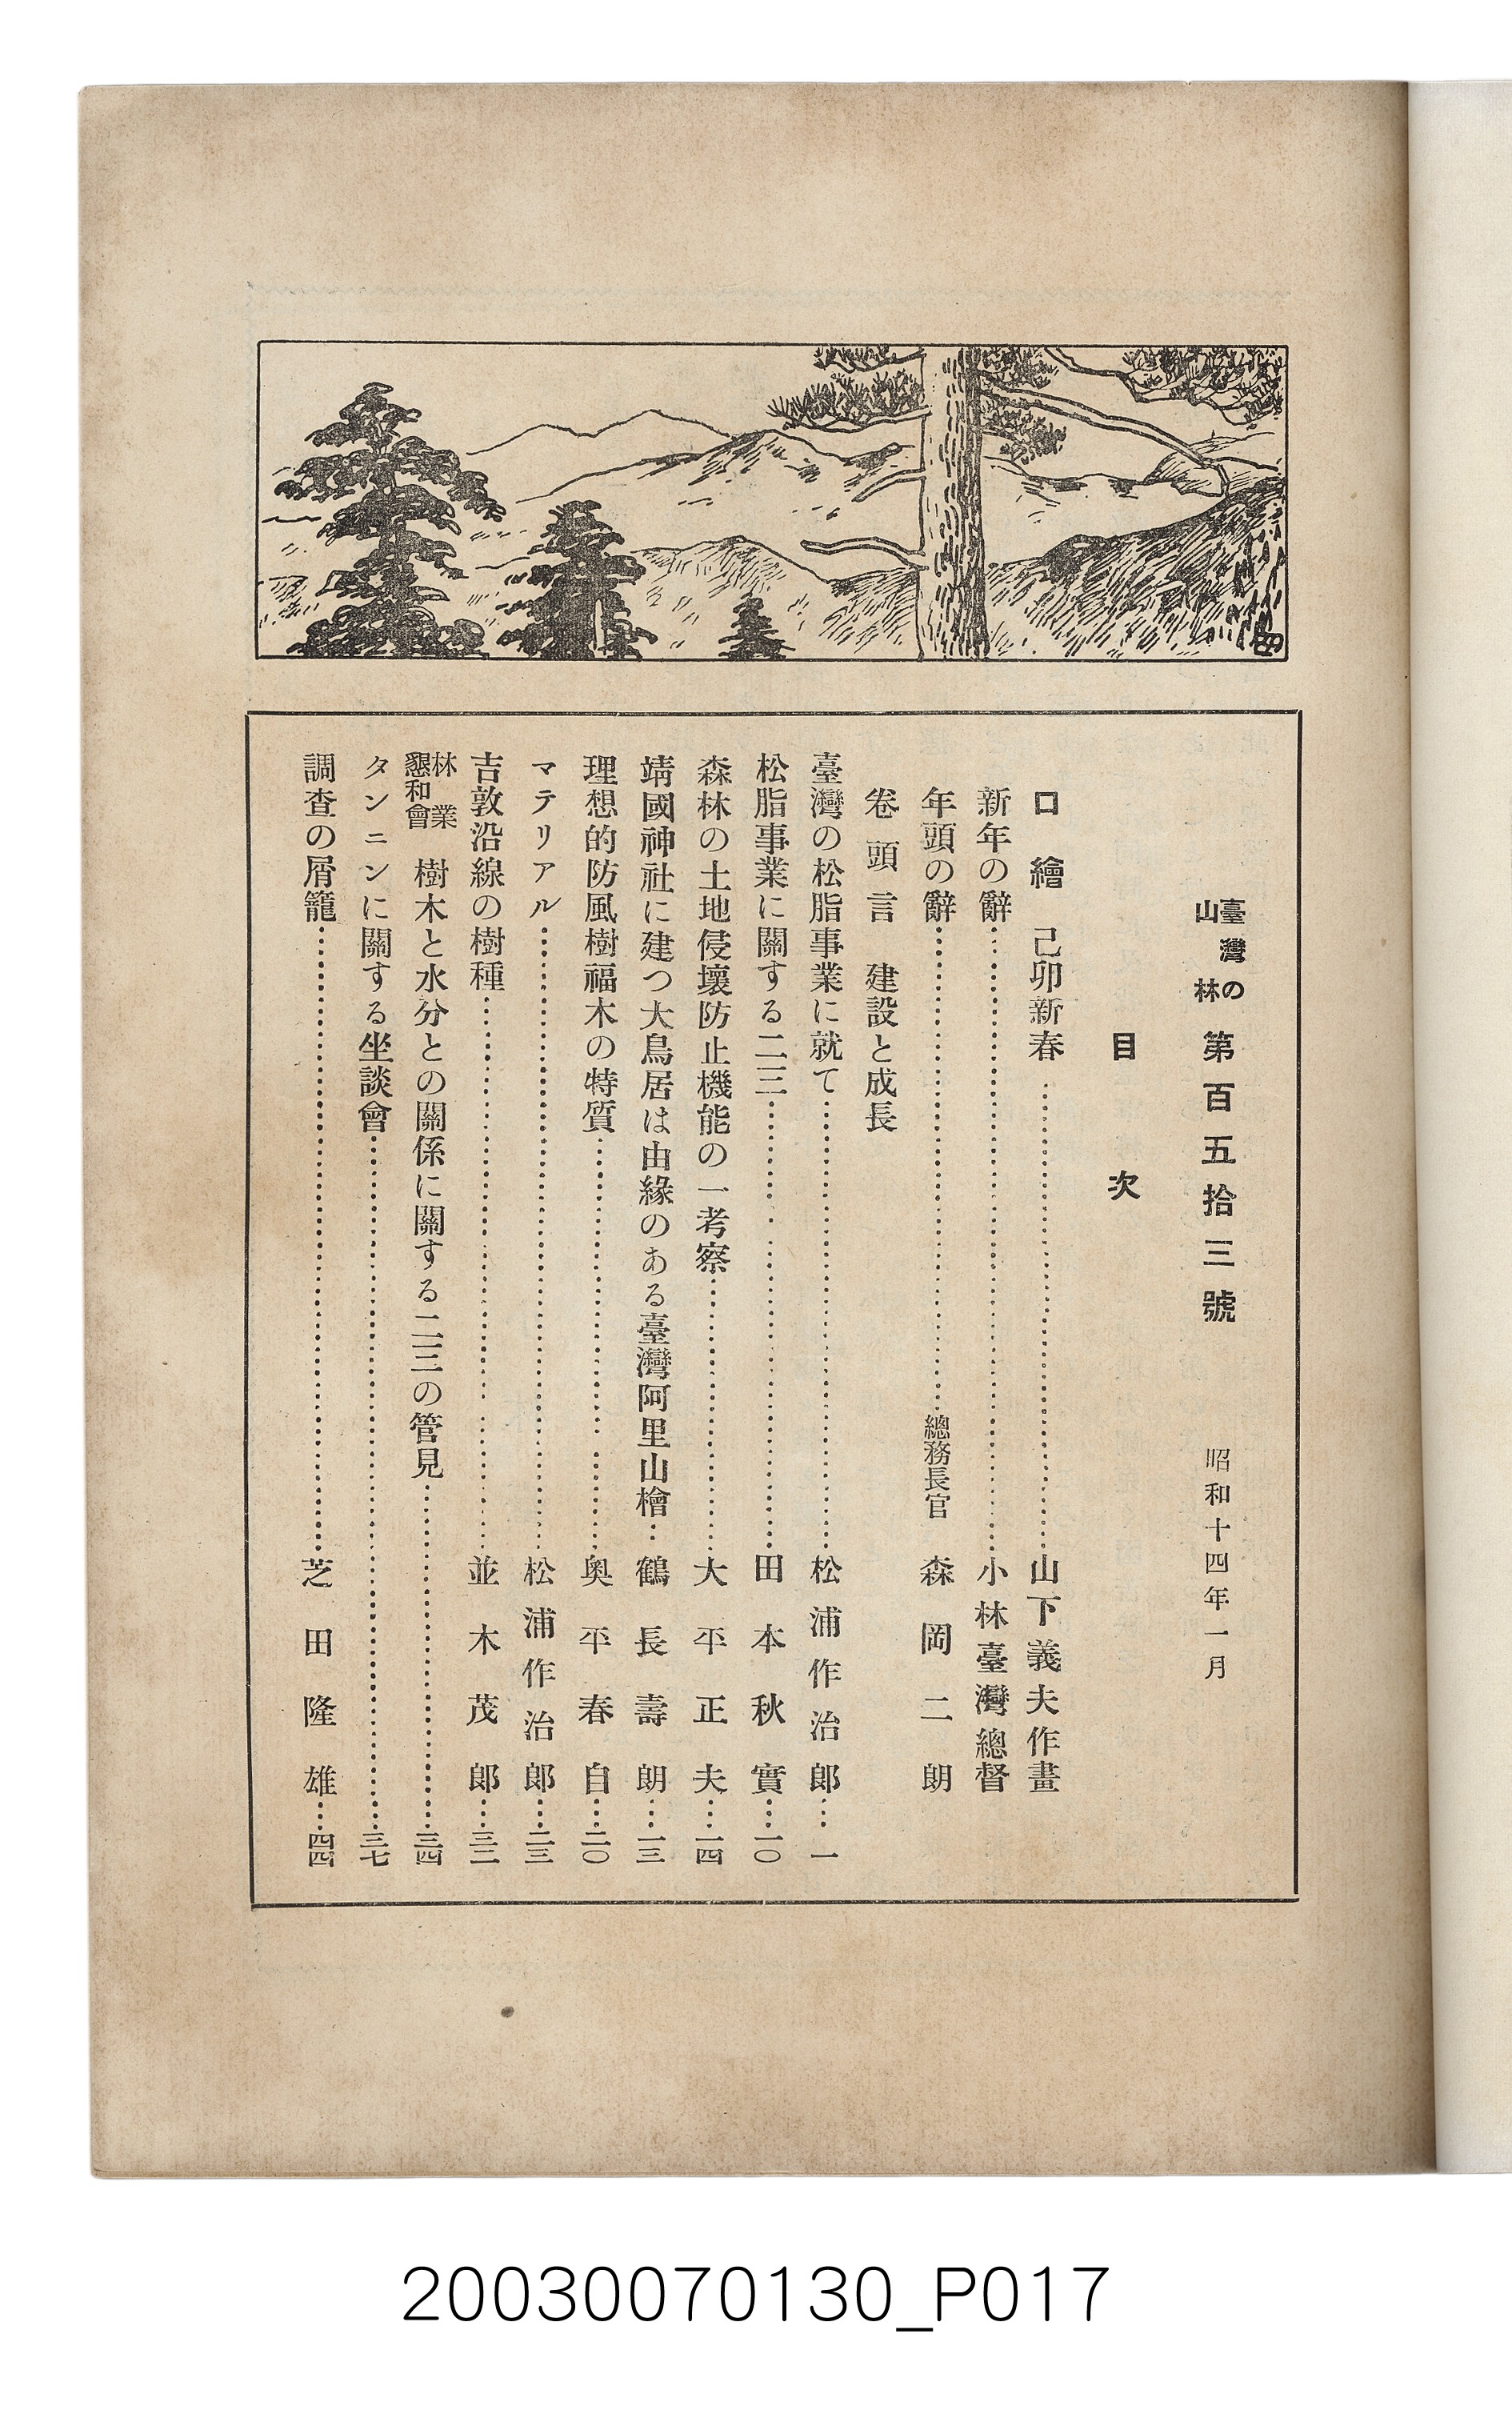 臺灣の山林 第百五拾三號 昭和十四年一月
目次
口繪 己卯新春…………山下義夫作畫
新年の辭…………小林臺灣總督
年頭の辭…………總務長官 森岡二朗
卷頭言 建設と成長
臺灣の松脂事業に就て…………松浦作治郎…一
松脂事業に關する二三…………田本秋實…一〇
森林の土地侵壞防止機能の一考察…………大平正夫…一四
靖國神社に建つ大鳥居は由緣のある臺灣阿里山檜…鶴長壽朗…一三
理想的防風樹福木の特質…………奧平春自…二〇
マテリアル…………松浦作治郎…二三
吉敦沿線の樹種…………並木茂郎…三二
林業懇和會 樹木と水分との關係に關する二三の管見…………三四
タンニンに關する坐談會…………三七
調査の屑籠…………芝田隆雄…四四
20030070130_P017